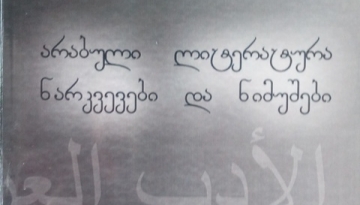 არაბული ლიტერატურა
ნარკვევები და ნიმუშები
الأدب